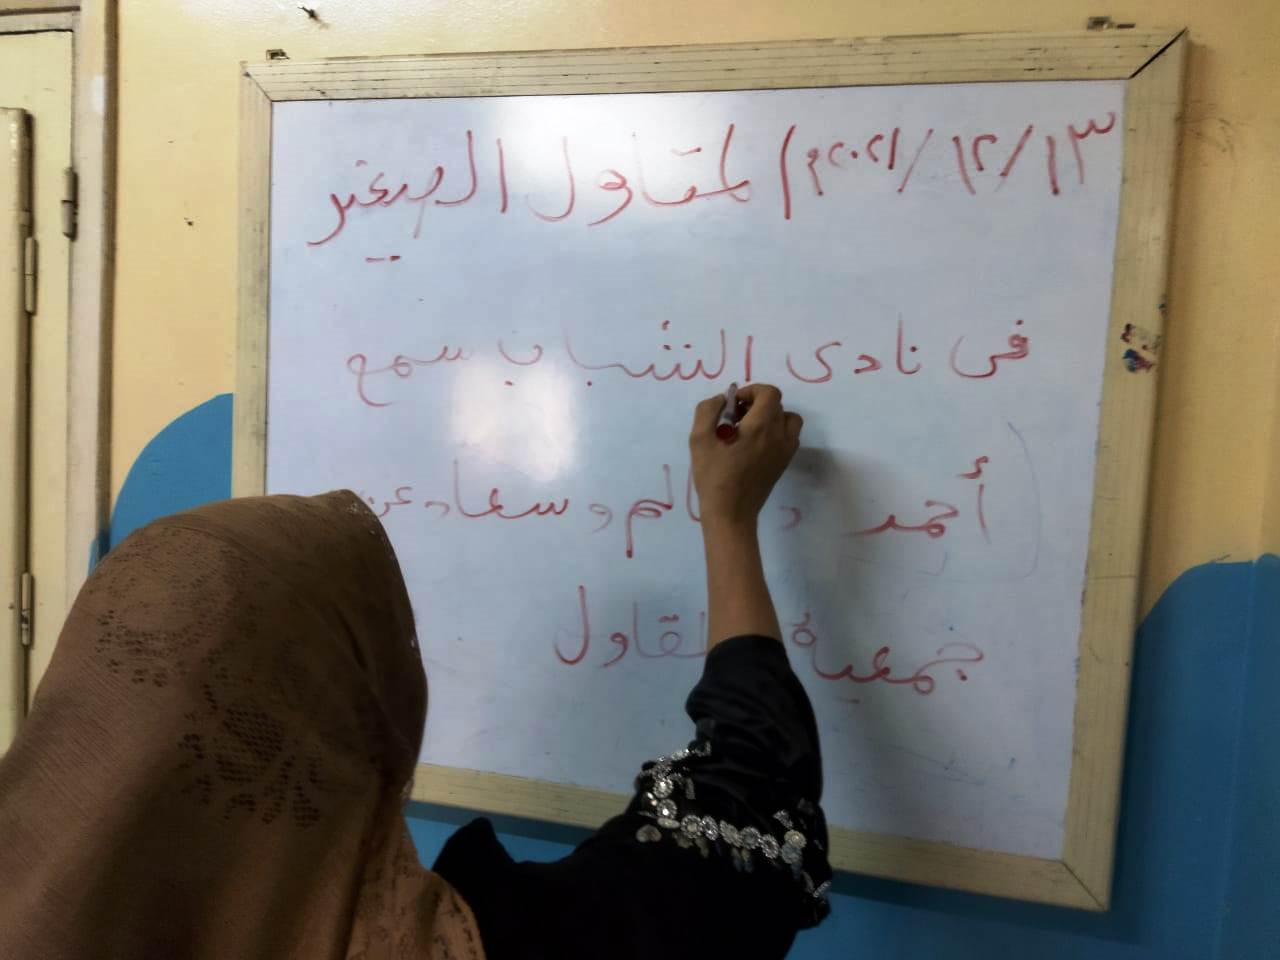 ١٣/١٢/٢٠٢١م المقاول الصغير
فى نادى الشباب سمع
أحمد وسالم وسعاد عن
جمعية المقاول